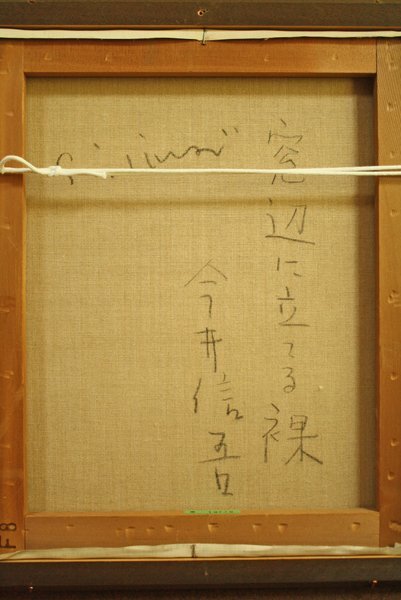 窓辺に立てる裸
今井信吾
S. imai
F8